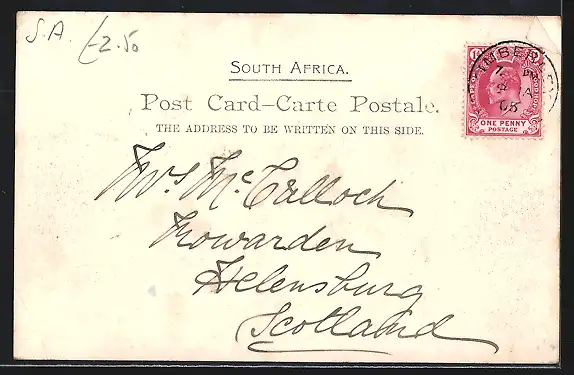 S.A. £2.50
SOUTH AFRICA.
Post Card–Carte Postale.
THE ADDRESS TO BE WRITTEN ON THIS SIDE.
ONE PENNY
POSTAGE
Mrs McCalloch
Rowarden
Helensburg
Scotland